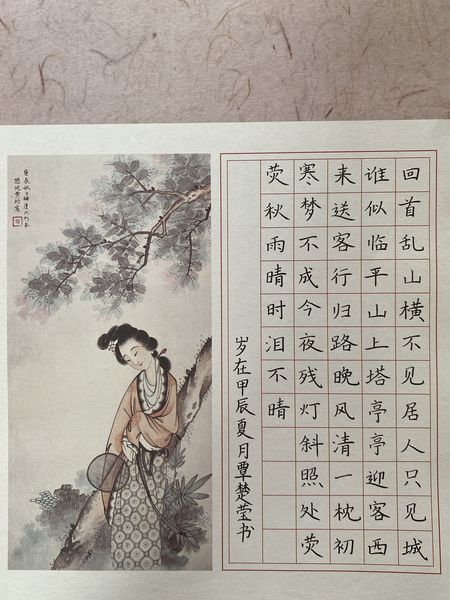 回首乱山横不见居人只见城
谁似临平山上塔亭亭迎客西
来送客行归路晚风清一枕初
寒梦不成今夜残灯斜照处荧
荧秋雨晴时泪不晴
岁在甲辰夏月覃楚莹书